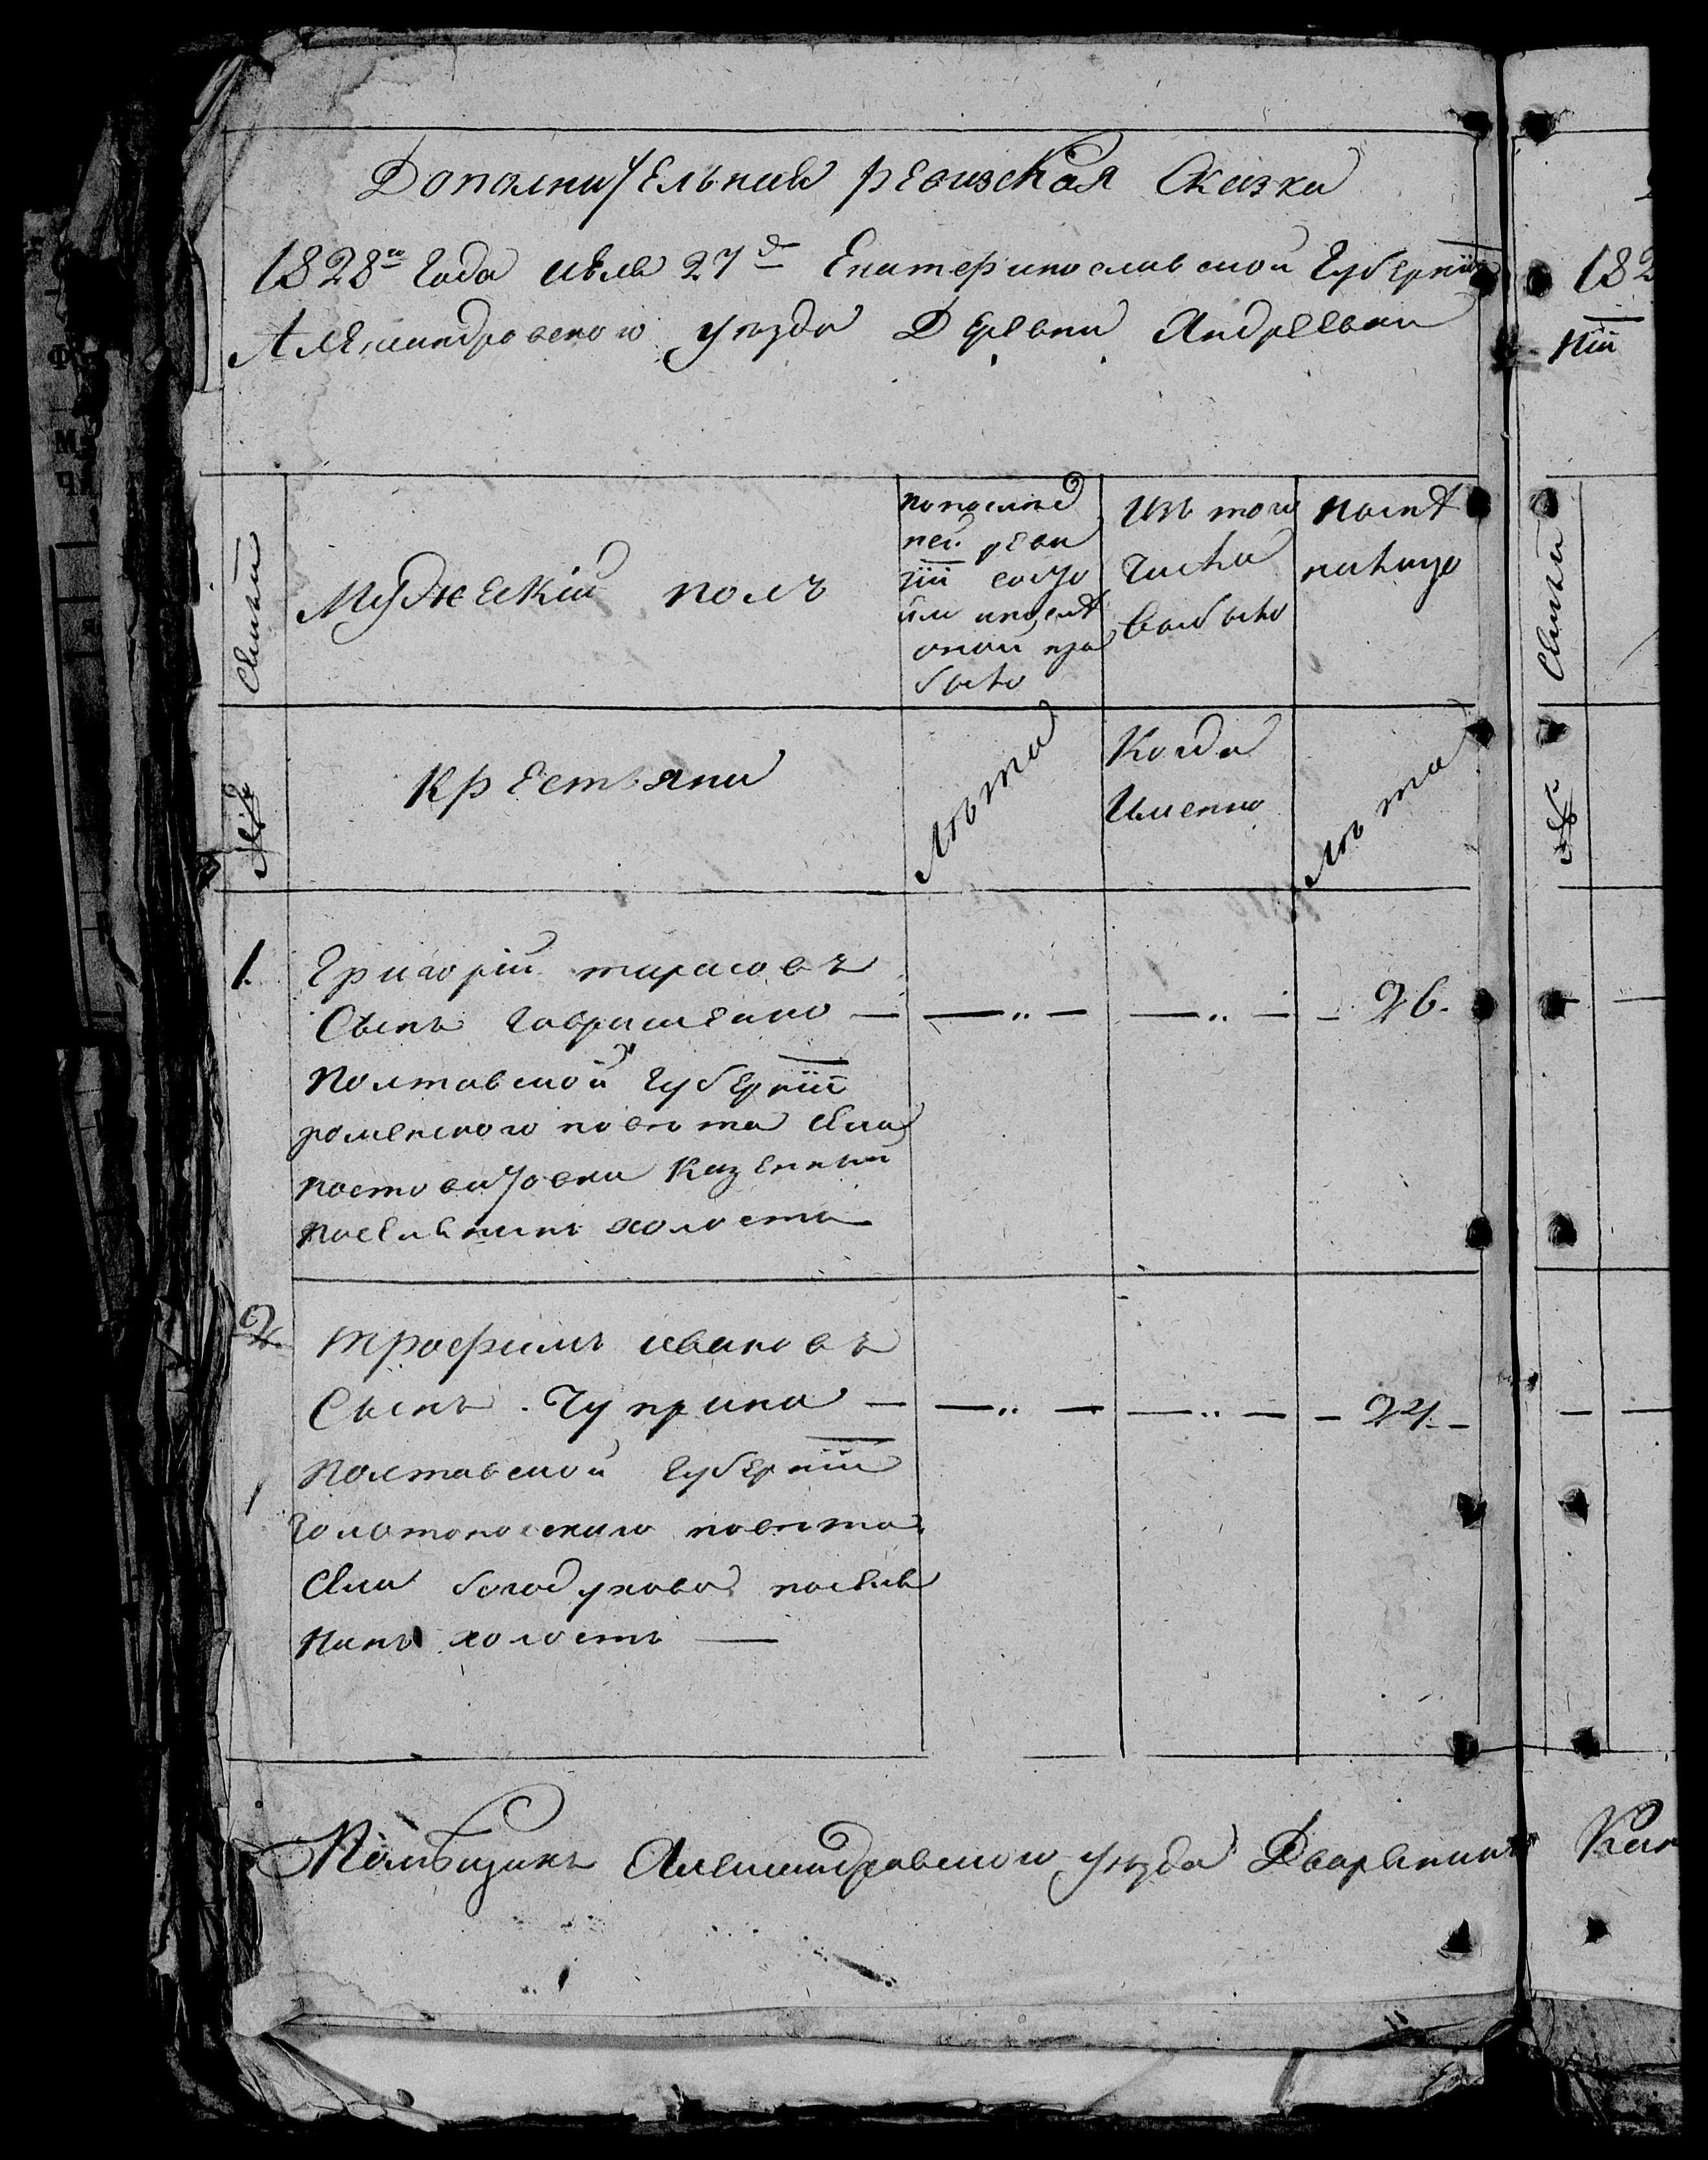 Дополнительная ревизская Сказка
1828го Года июля 27 д Екатеринославской Губернии
Александровского уезда Деревни Андреевки
Семьи
Мужеский полъ
по послед
ней реви
зіи состо
яло и после
оной при
было
Изъ того
Числа
выбыло
ныне
налицо
№
Крестьяне
Лѣта
Когда
Именно
Лѣта
1. Григорій тарасовъ
Сынъ Гавриленко — —„— —„— — 26.
Полтавской Губерніи
роменского повета села
постовитовки Казенный
поселянинъ холостъ
2. трофимъ ивановъ
Сынъ Чуприна — —„— —„— — 24. —
Полтавской Губерніи
золотоношского повета
села богодухова поселя
нинъ холостъ —
Помѣщикъ Александровского уезда Дворянинъ
182
ніи
Семьи
№